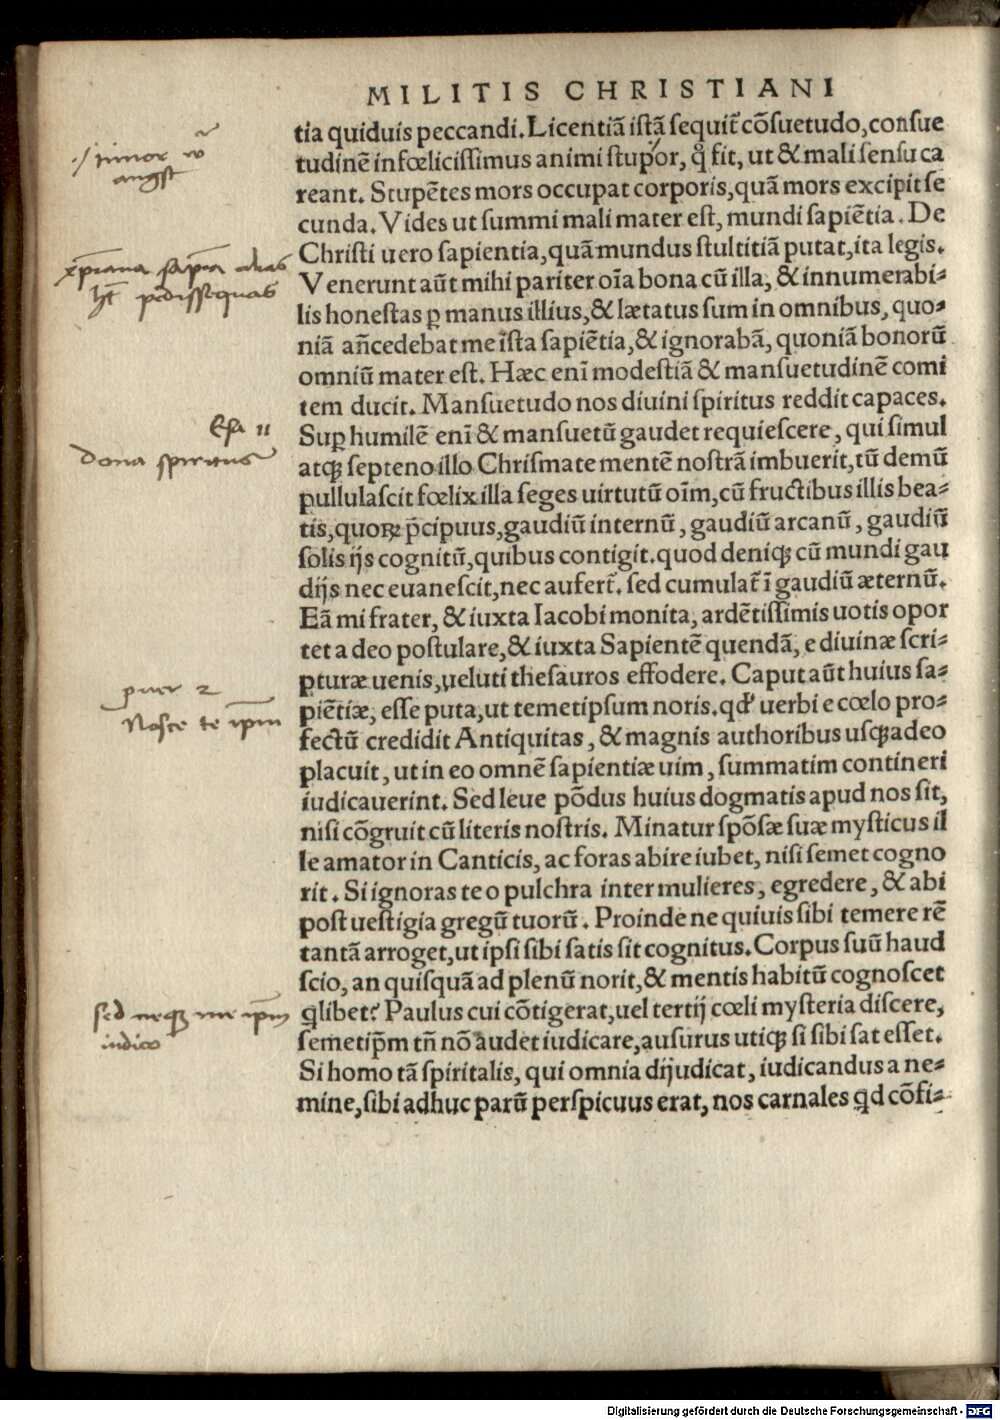 MILITIS CHRISTIANI
tia quiduis peccandi. Licentiã istã sequit᷑ cõsuetudo, consue
tudinẽ infœlicissimus animi stupor, q̊ fit, ut & mali sensu ca
reant. Stupẽtes mors occupat corporis, quã mors excipit se
cunda. Vides ut summi mali mater est, mundi sapiẽtia. De
Christi uero sapientia, quã mundus stultitiã putat, ita legis.
Venerunt aũt mihi pariter oĩa bona cũ illa, & innumerabi-
lis honestas ꝑ manus illius, & lætatus sum in omnibus, quo-
niã añcedebat me ista sapiẽtia, & ignorabã, quoniã bonorũ
omniũ mater est. Hæc enĩ modestiã & mansuetudinẽ comi
tem ducit. Mansuetudo nos diuini spiritus reddit capaces.
Suꝑ humilẽ enĩ & mansuetũ gaudet requiescere, qui simul
atqꝫ septeno illo Chrismate mentẽ nostrã imbuerit, tũ demũ
pullulascit fœlix illa seges uirtutũ oĩm, cũ fructibus illis bea-
tis, quoꝝ p̃cipuus, gaudiũ internũ, gaudiũ arcanũ, gaudiũ
solis ijs cognitũ, quibus contigit. quod deniqꝫ cũ mundi gau
dijs nec euanescit, nec aufert᷑. sed cumulat᷑ ĩ gaudiũ æternũ.
Eã mi frater, & iuxta Iacobi monita, ardẽtissimis uotis opor
tet a deo postulare, & iuxta Sapientẽ quendã, e diuinæ scri-
pturæ uenis, ueluti thesauros effodere. Caput aũt huius sa-
piẽtiæ, esse puta, ut temetipsum noris. qđ uerbi e cœlo pro-
fectũ credidit Antiquitas, & magnis authoribus usqꝫ adeo
placuit, ut in eo omnẽ sapientiæ uim, summatim contineri
iudicauerint. Sed leue põdus huius dogmatis apud nos sit,
nisi cõgruit cũ literis nostris. Minatur spõsæ suæ mysticus il
le amator in Canticis, ac foras abire iubet, nisi semet cogno
rit. Si ignoras te o pulchra inter mulieres, egredere, & abi
post uestigia gregũ tuorũ. Proinde ne quiuis sibi temere rẽ
tantã arroget, ut ipsi sibi satis sit cognitus. Corpus suũ haud
scio, an quisquã ad plenũ norit, & mentis habitũ cognoscet
ꝗlibet? Paulus cui cõtigerat, uel tertij cœli mysteria discere,
semetip̃m tñ nõ audet iudicare, ausurus utiqꝫ si sibi sat esset.
Si homo tã spiritalis, qui omnia dijudicat, iudicandus a ne-
mine, sibi adhuc parũ perspicuus erat, nos carnales ꝗd cõfi-
timor
angst
xp̃iana sap̃ia alias
ht̃ pedissequas
Esa 11
dona spiritus
puer 2
Nosce te ip̃m
sed neqꝫ me ip̃m
iudico
Digitalisierung gefördert durch die Deutsche Forschungsgemeinschaft - DFG